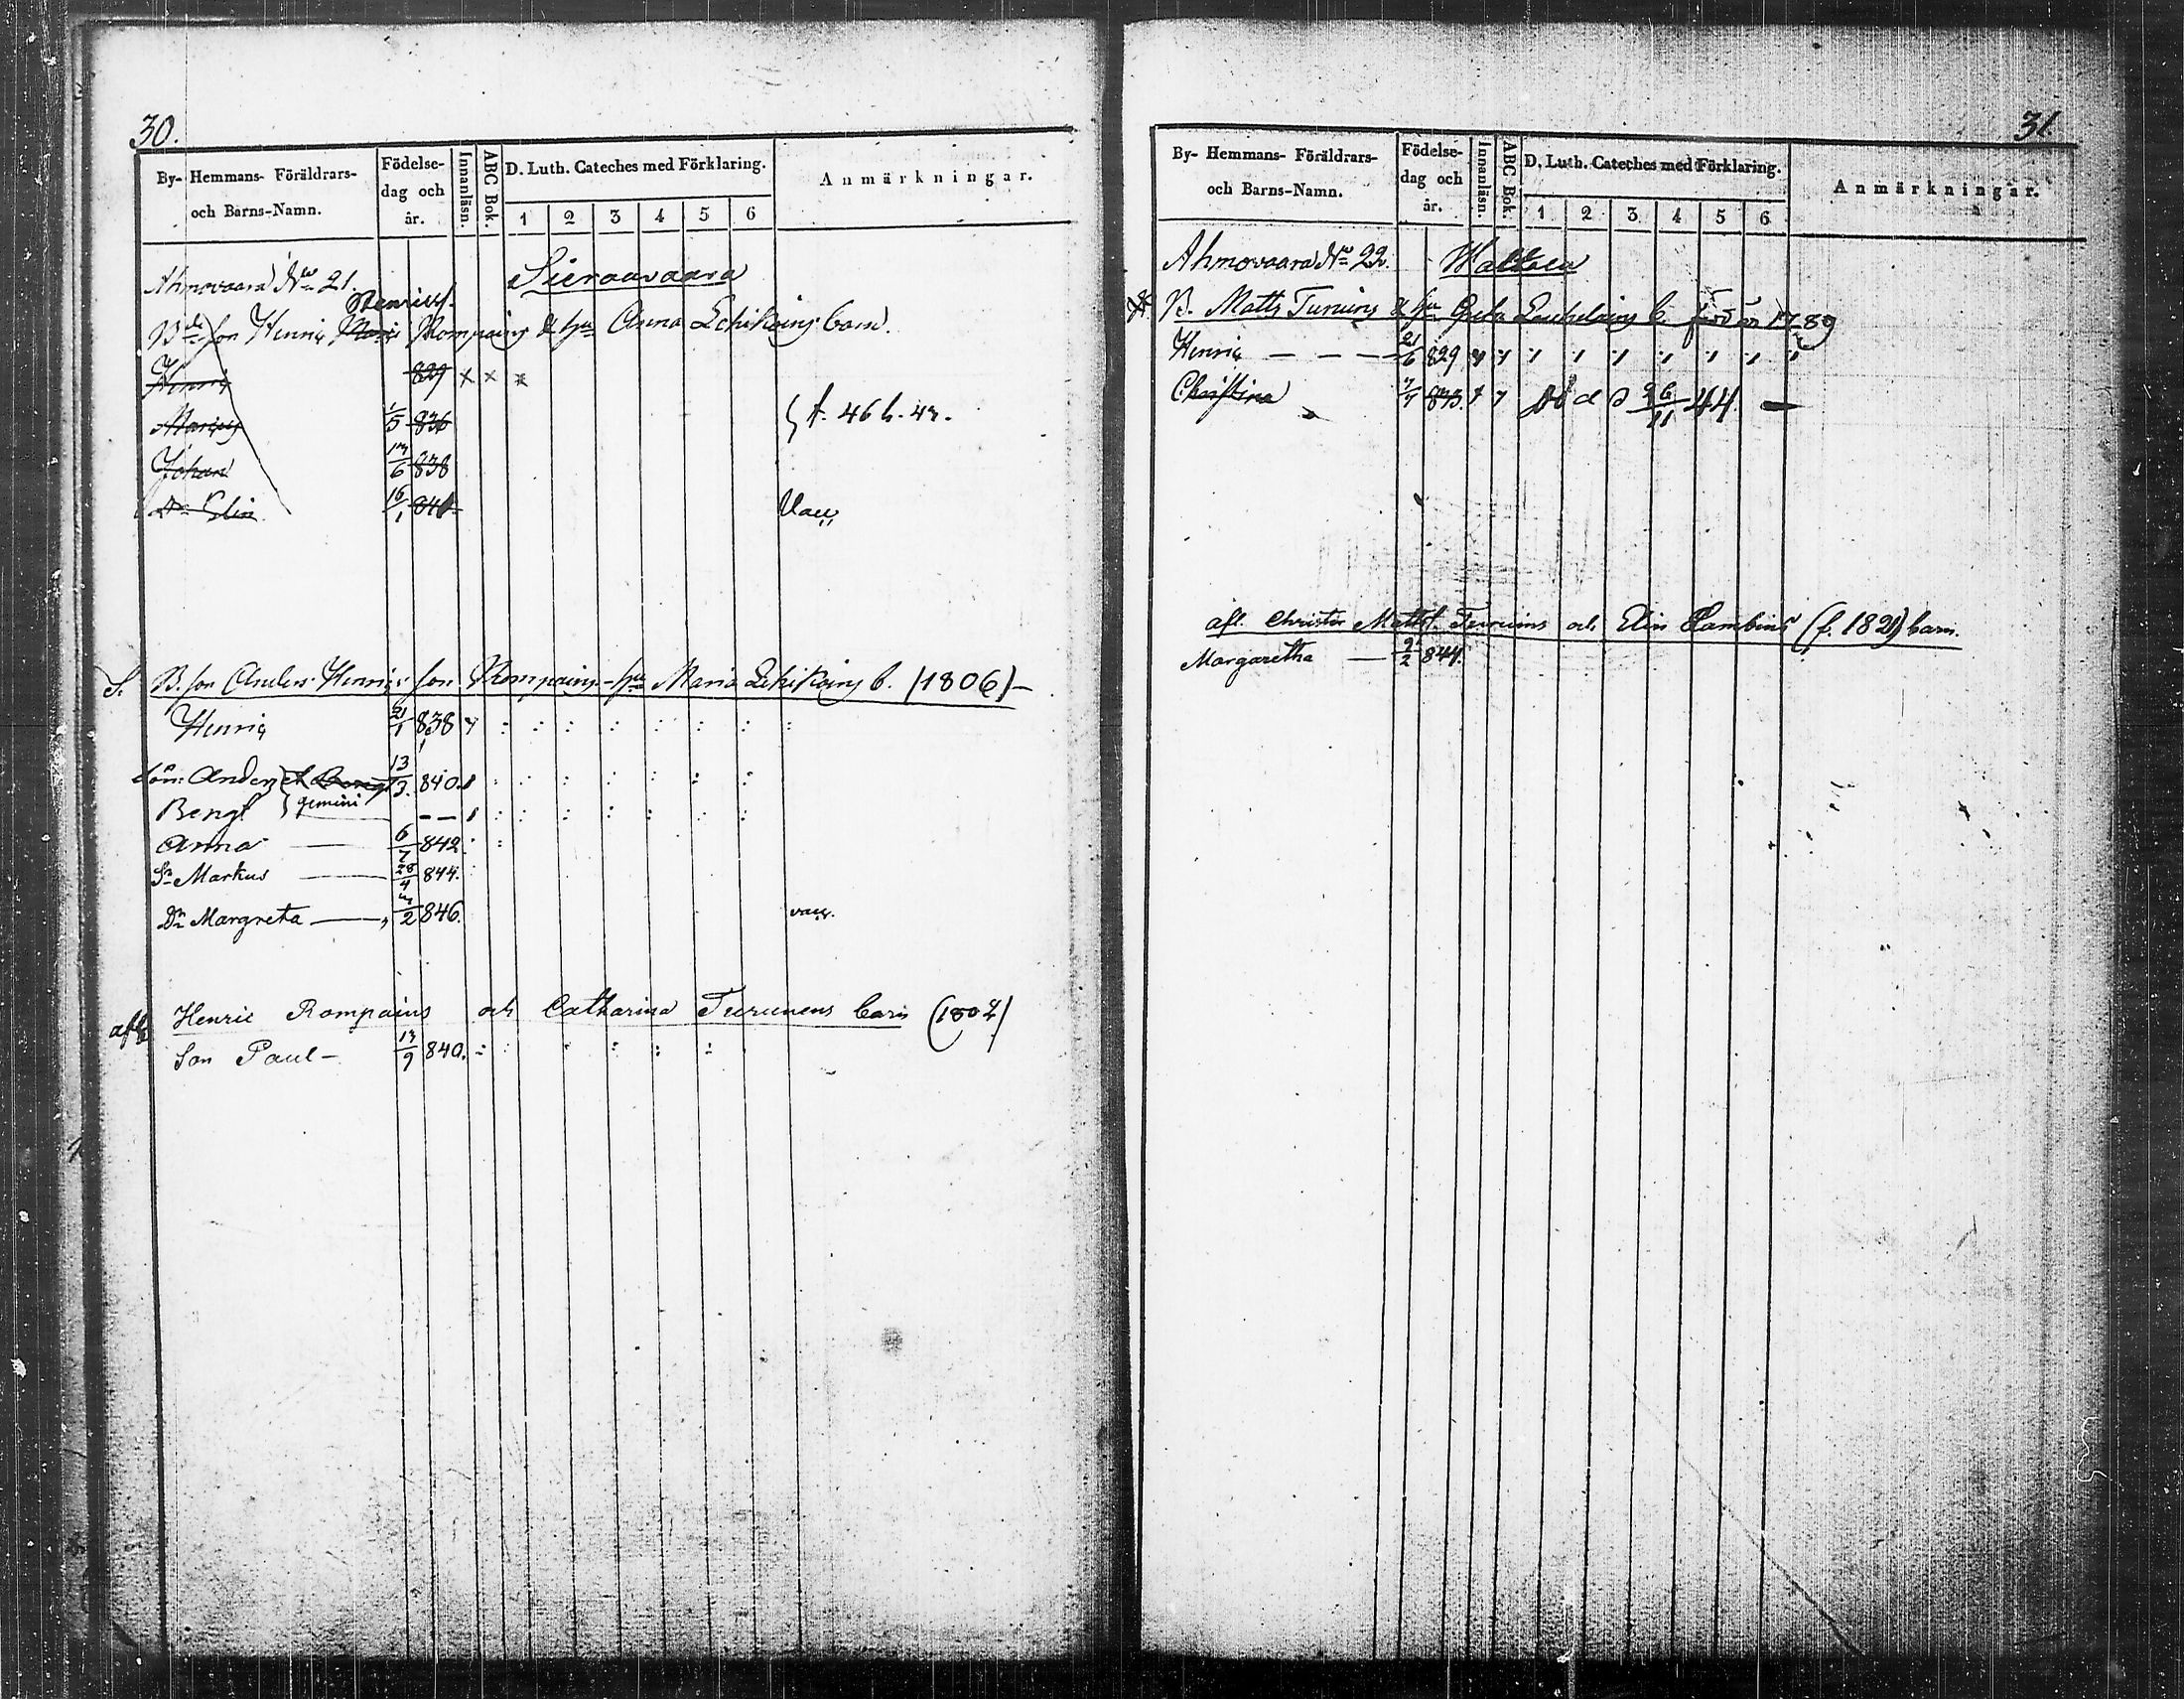 30.
By- Hemmans- Föräldrars-
och Barns-Namn.
Födelse-
dag och
år.
Innanläsn.
ABC Bok.
D. Luth. Cateches med Förklaring.
1 2 3 4 5 6
Anmärkningar.
Ahmovaara No 21. Sieraavaara
Henrics.
B. son Henric Rompains & hu Anna Lehikoins barn.
Henric 829 x x x
5 836 f. 46 h. 43.
Johan 13/6 838
Dr Elin 16/1 Vacc.
S. B. son Anders Henrics son Rompains hu Maria Lehikoins b. (1806)-
Henric 21/1 838
Anders 13/3. 840.
Bengt gemini - -
Anna 6/7 842
Sn Markus 28/4 844.
Dr Margreta 3/2 846. vacc.
afl. Henric Rompains och Catharina Turunens barn
Son Paul- 13/9 840.
31.
By- Hemmans- Föräldrars-
och Barns-Namn.
Födelse-
dag och
år.
Innanläsn.
ABC Bok.
D. Luth. Cateches med Förklaring.
1 2 3 4 5 6
Anmärkningar.
Ahmovaara No 22. Waltola
B. Matts Turuins & hu Greta b. född 1789
Henric - - - 21/6 829
Christina 44 -
afl. Christer Matts. Turuins och Elin barn.
Margaretha - 9/2 844.